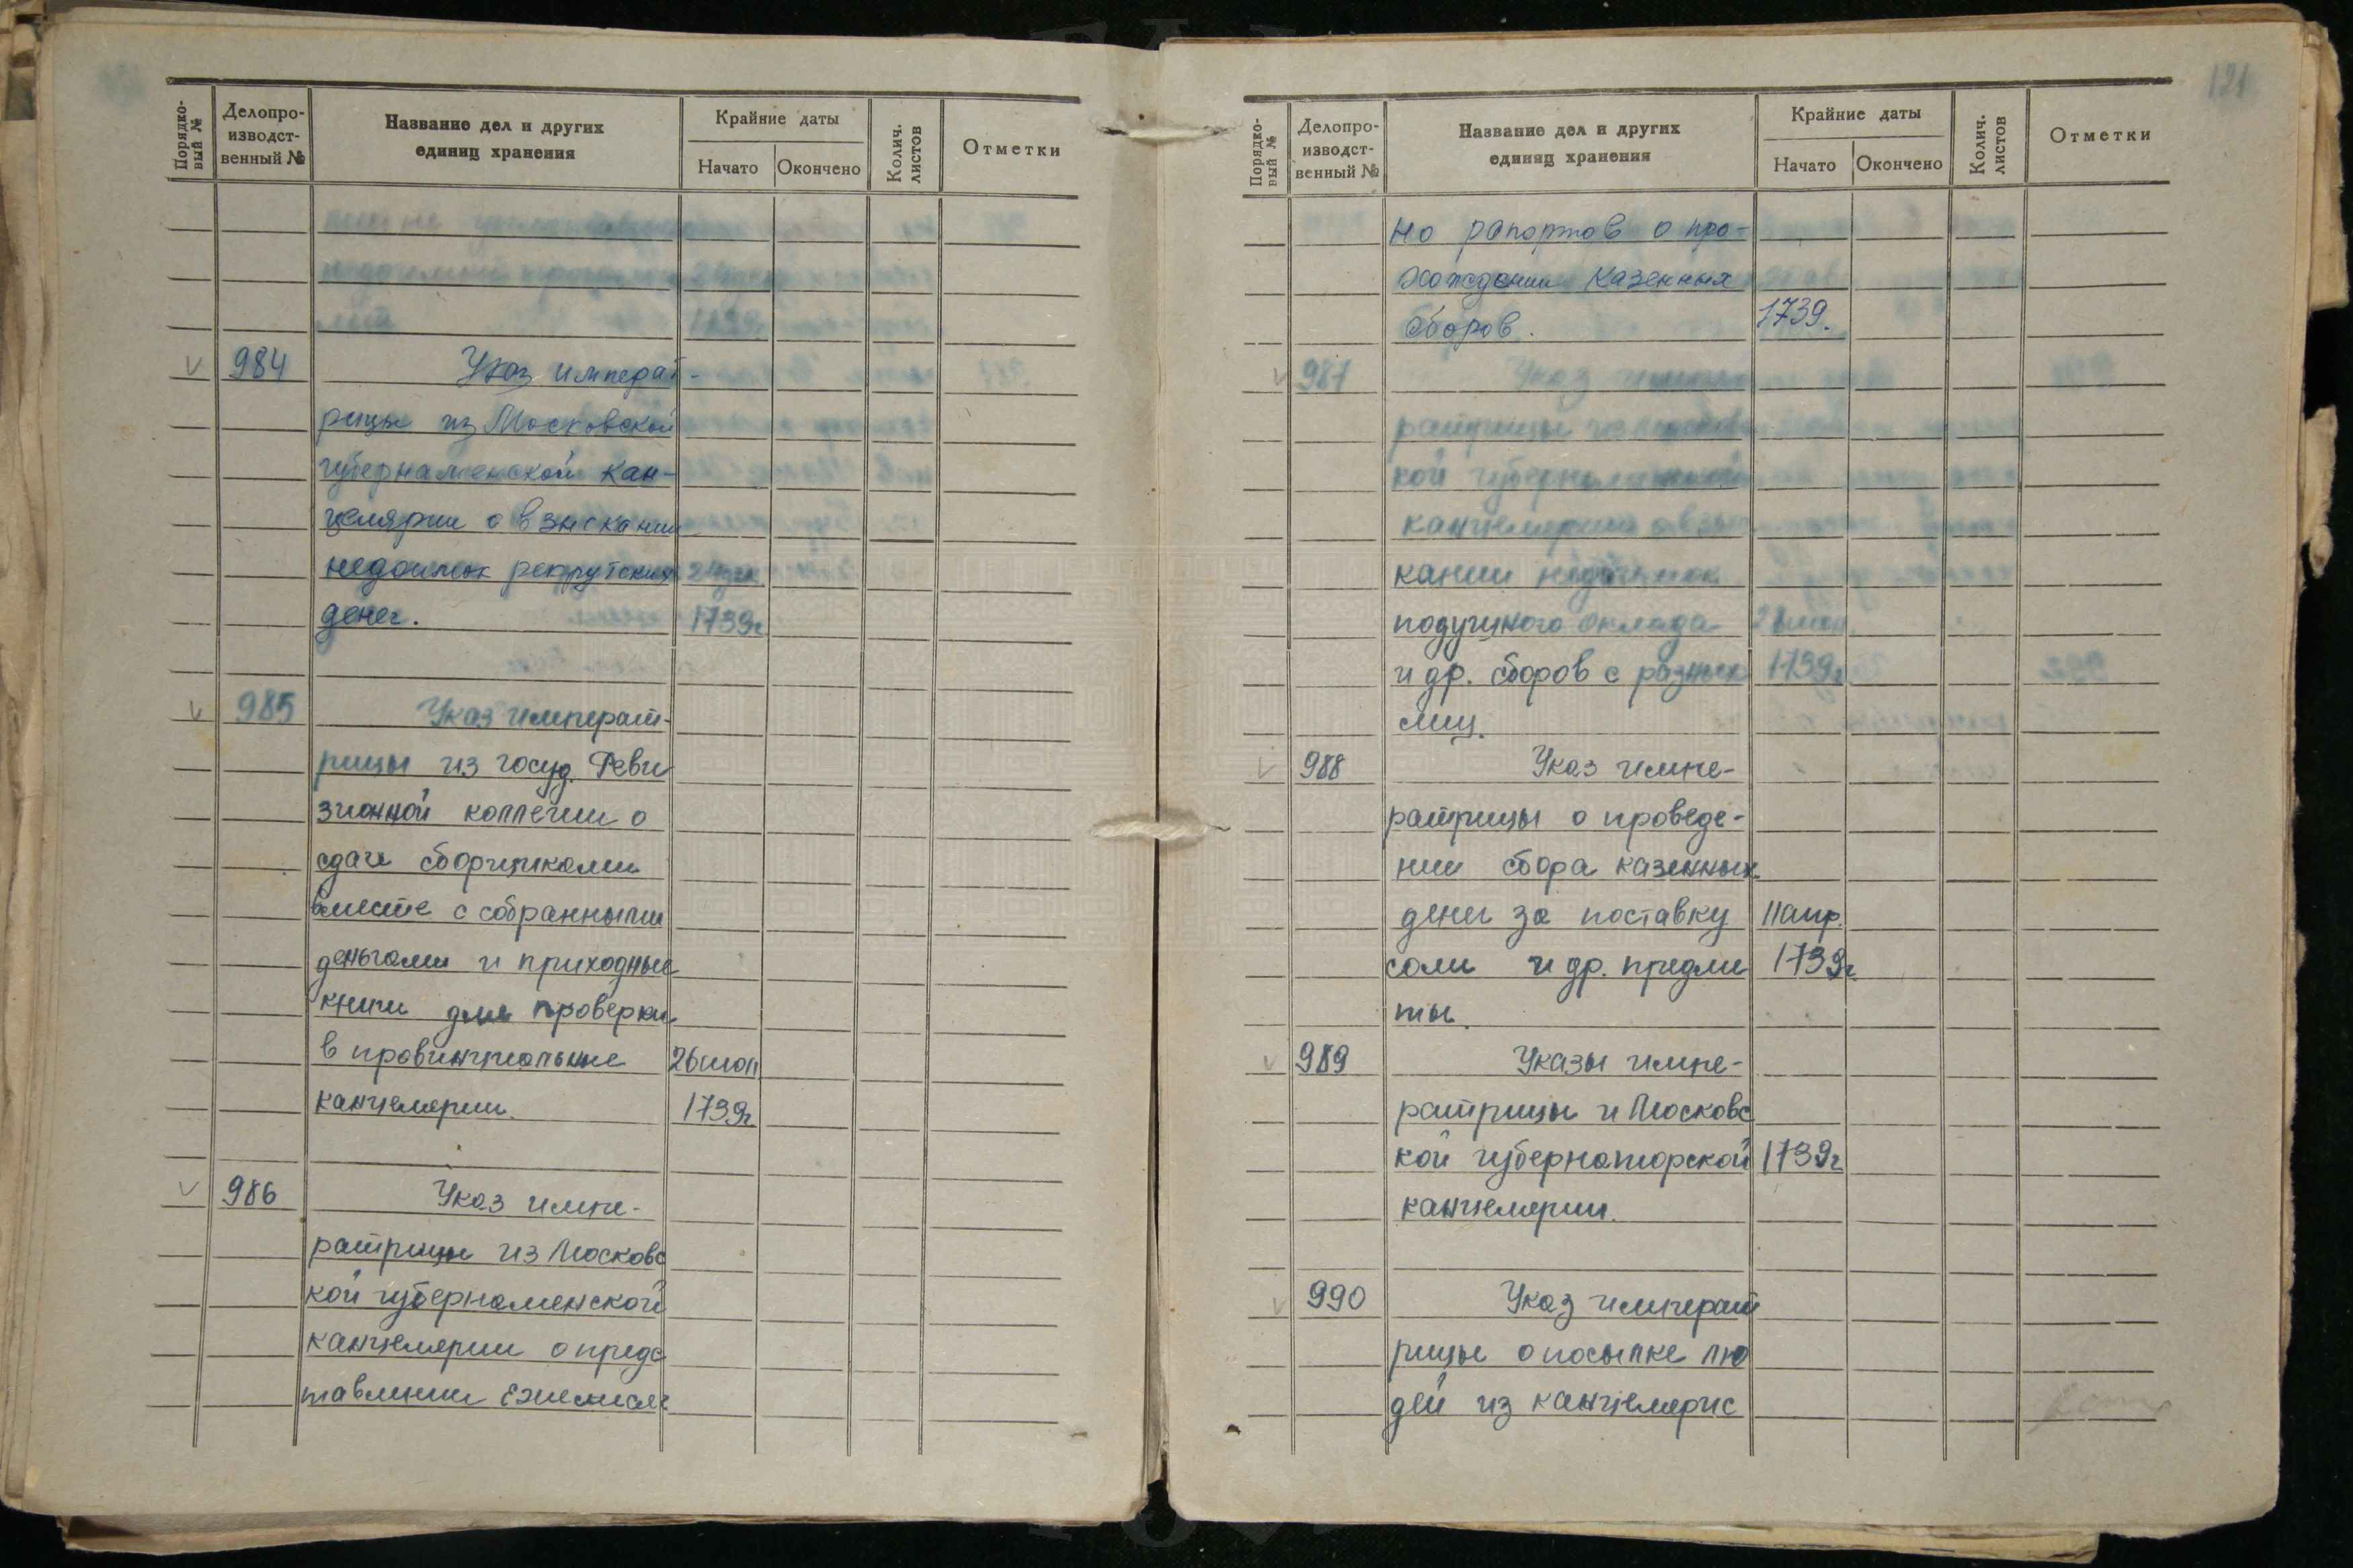 Порядко-
вый №
Делопро-
изводст-
венный №
Название дел и других
единиц хранения
Крайние даты
Начато
Окончено
Колич.
листов
Отметки
984
Указ императ-
рицы из Московской
губернаменской кан-
целярии о взыскании
недоимок рекрутских
денег. 1739г
985
Указ императ-
рицы из госуд. Реви
зионной коллегии о
сдаче сборщиками
вместе с собранными
деньгами и приходные
книги для проверки
в провинциальные 26 июл
канцелярии. 1739г
986
Указ импе-
ратрицы из Московс
кой губернаменской
канцелярии о предс
тавлении ежемесяч
121
Порядко-
вый №
Делопро-
изводст-
венный №
Название дел и других
единиц хранения
Крайние даты
Начато
Окончено
Колич.
листов
Отметки
но рапортов о про-
хождении казенных
сборов. 1739.
987
Указ
ратрицы
кой губернаменской
канцелярии о взыс
кании недоимок
подушного оклада
и др. сборов с разных 1739г
лиц.
988
Указ импе-
ратрицы о проведе-
нии сбора казенных
денег за поставку 11 апр.
соли и др. предме 1739г
ты.
989
Указы импе-
ратрицы и Московс
кой губернаторской 1739г
канцелярии.
990
Указ императ
рицы о посылке лю
дей из канцелярис